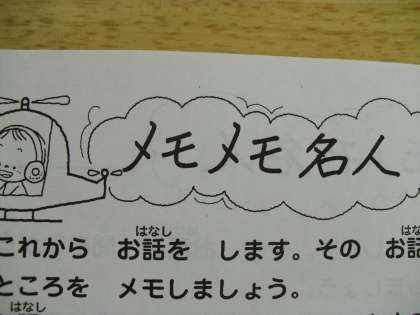 メモメモ名人
これから お話を します。その お話
はなし
ところを メモしましょう。
はなし